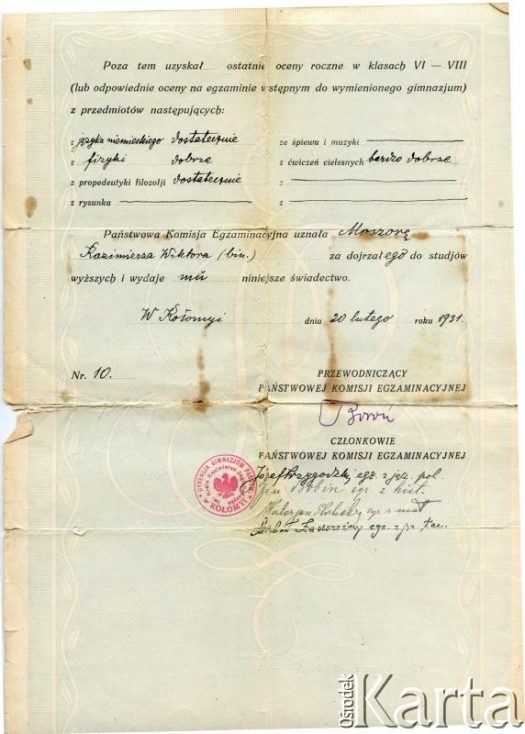 Poza tem uzyskał ostatnie oceny roczne w klasach VI — VIII
(lub odpowiednie oceny na egzaminie wstępnym do wymienionego gimnazjum)
z przedmiotów następujących:
z języka niemieckiego dostatecznie ze śpiewu i muzyki
z fizyki dobrze z ćwiczeń cielesnych bardzo dobrze
z propedeutyki filozofji dostatecznie z
z rysunku z
Państwowa Komisja Egzaminacyjna uznała Moszorę
Kazimierza Wiktora (bin.) za dojrzałego do studjów
wyższych i wydaje mu niniejsze świadectwo.
W Kołomyi dnia 20 lutego roku 1931.
Nr. 10. PRZEWODNICZĄCY
PAŃSTWOWEJ KOMISJI EGZAMINACYJNEJ
CZŁONKOWIE
PAŃSTWOWEJ KOMISJI EGZAMINACYJNEJ
Józef Przygodzki egz. z jęz. pol.
Jan Bobin egz. z hist.
egz. z mat
egz. z jęz. łac.
DYREKCJA GIMNAZJUM
KOŁOMYI
ośrodek Karta